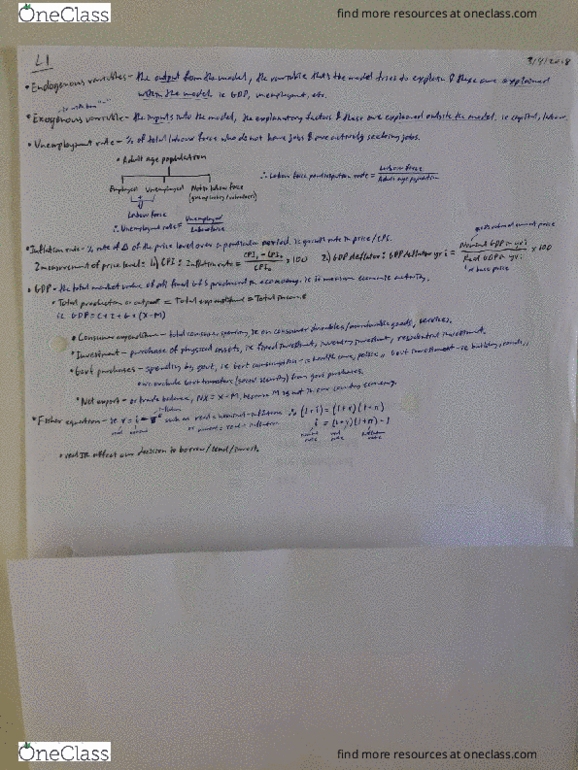 OneClass
find more resources at oneclass.com
L1
• Endogenous variables - the output from the model, the variable that the model tries to explain & these are explained
within the model ie GDP, unemployment, etc.
• Exogenous variable - the inputs into the model, the explanatory factors & these are explained outside the model, ie capital, labour
• Unemployment rate - % of total labour force who do not have jobs & are actively seeking jobs.
• Adult age population
Employed Unemployed Not in labour force
Labour force
∴ Unemployment rate = Unemployed / Labour force
∴ Labour force participation rate = Labour force / Adult age population
• Inflation rate - % rate of Δ of the price level over a particular period. ie growth rate in price / CPI.
2 measurement of price level: 1) CPI : Inflation rate = × 100 2) GDP deflator : GDP deflator yr i = Nominal GDP in yr i / Real GDP in yr i × 100
base price
• GDP - the total market value of all final G&S produced in economy. ie to measure economic activity.
• Total production or output = Total expenditure = Total income
ie GDP = C + I + G + (X - M)
• Consumer expenditure - total consumer spending, ie on consumer durables / non durable goods, services.
• Investment - purchase of physical assets, ie fixed investment, inventory investment, residential investment.
• Govt purchases - spending by govt, ie Govt consumption - ie health care, police, Govt investment - ie building, roads,
from govt purchases.
• Net export - or trade balance, NX = X - M, because M is not in our country
• Fisher equation - ie r = i - such as real = nominal - inflation ∴ (1+i) = (1+r)(1+π)
or nominal = real + inflation i = (1+r)(1+π) - 1
real nominal nominal rate real rate inflation rate
• real IR affect our decision to borrow / lend / invest.
OneClass
find more resources at oneclass.com